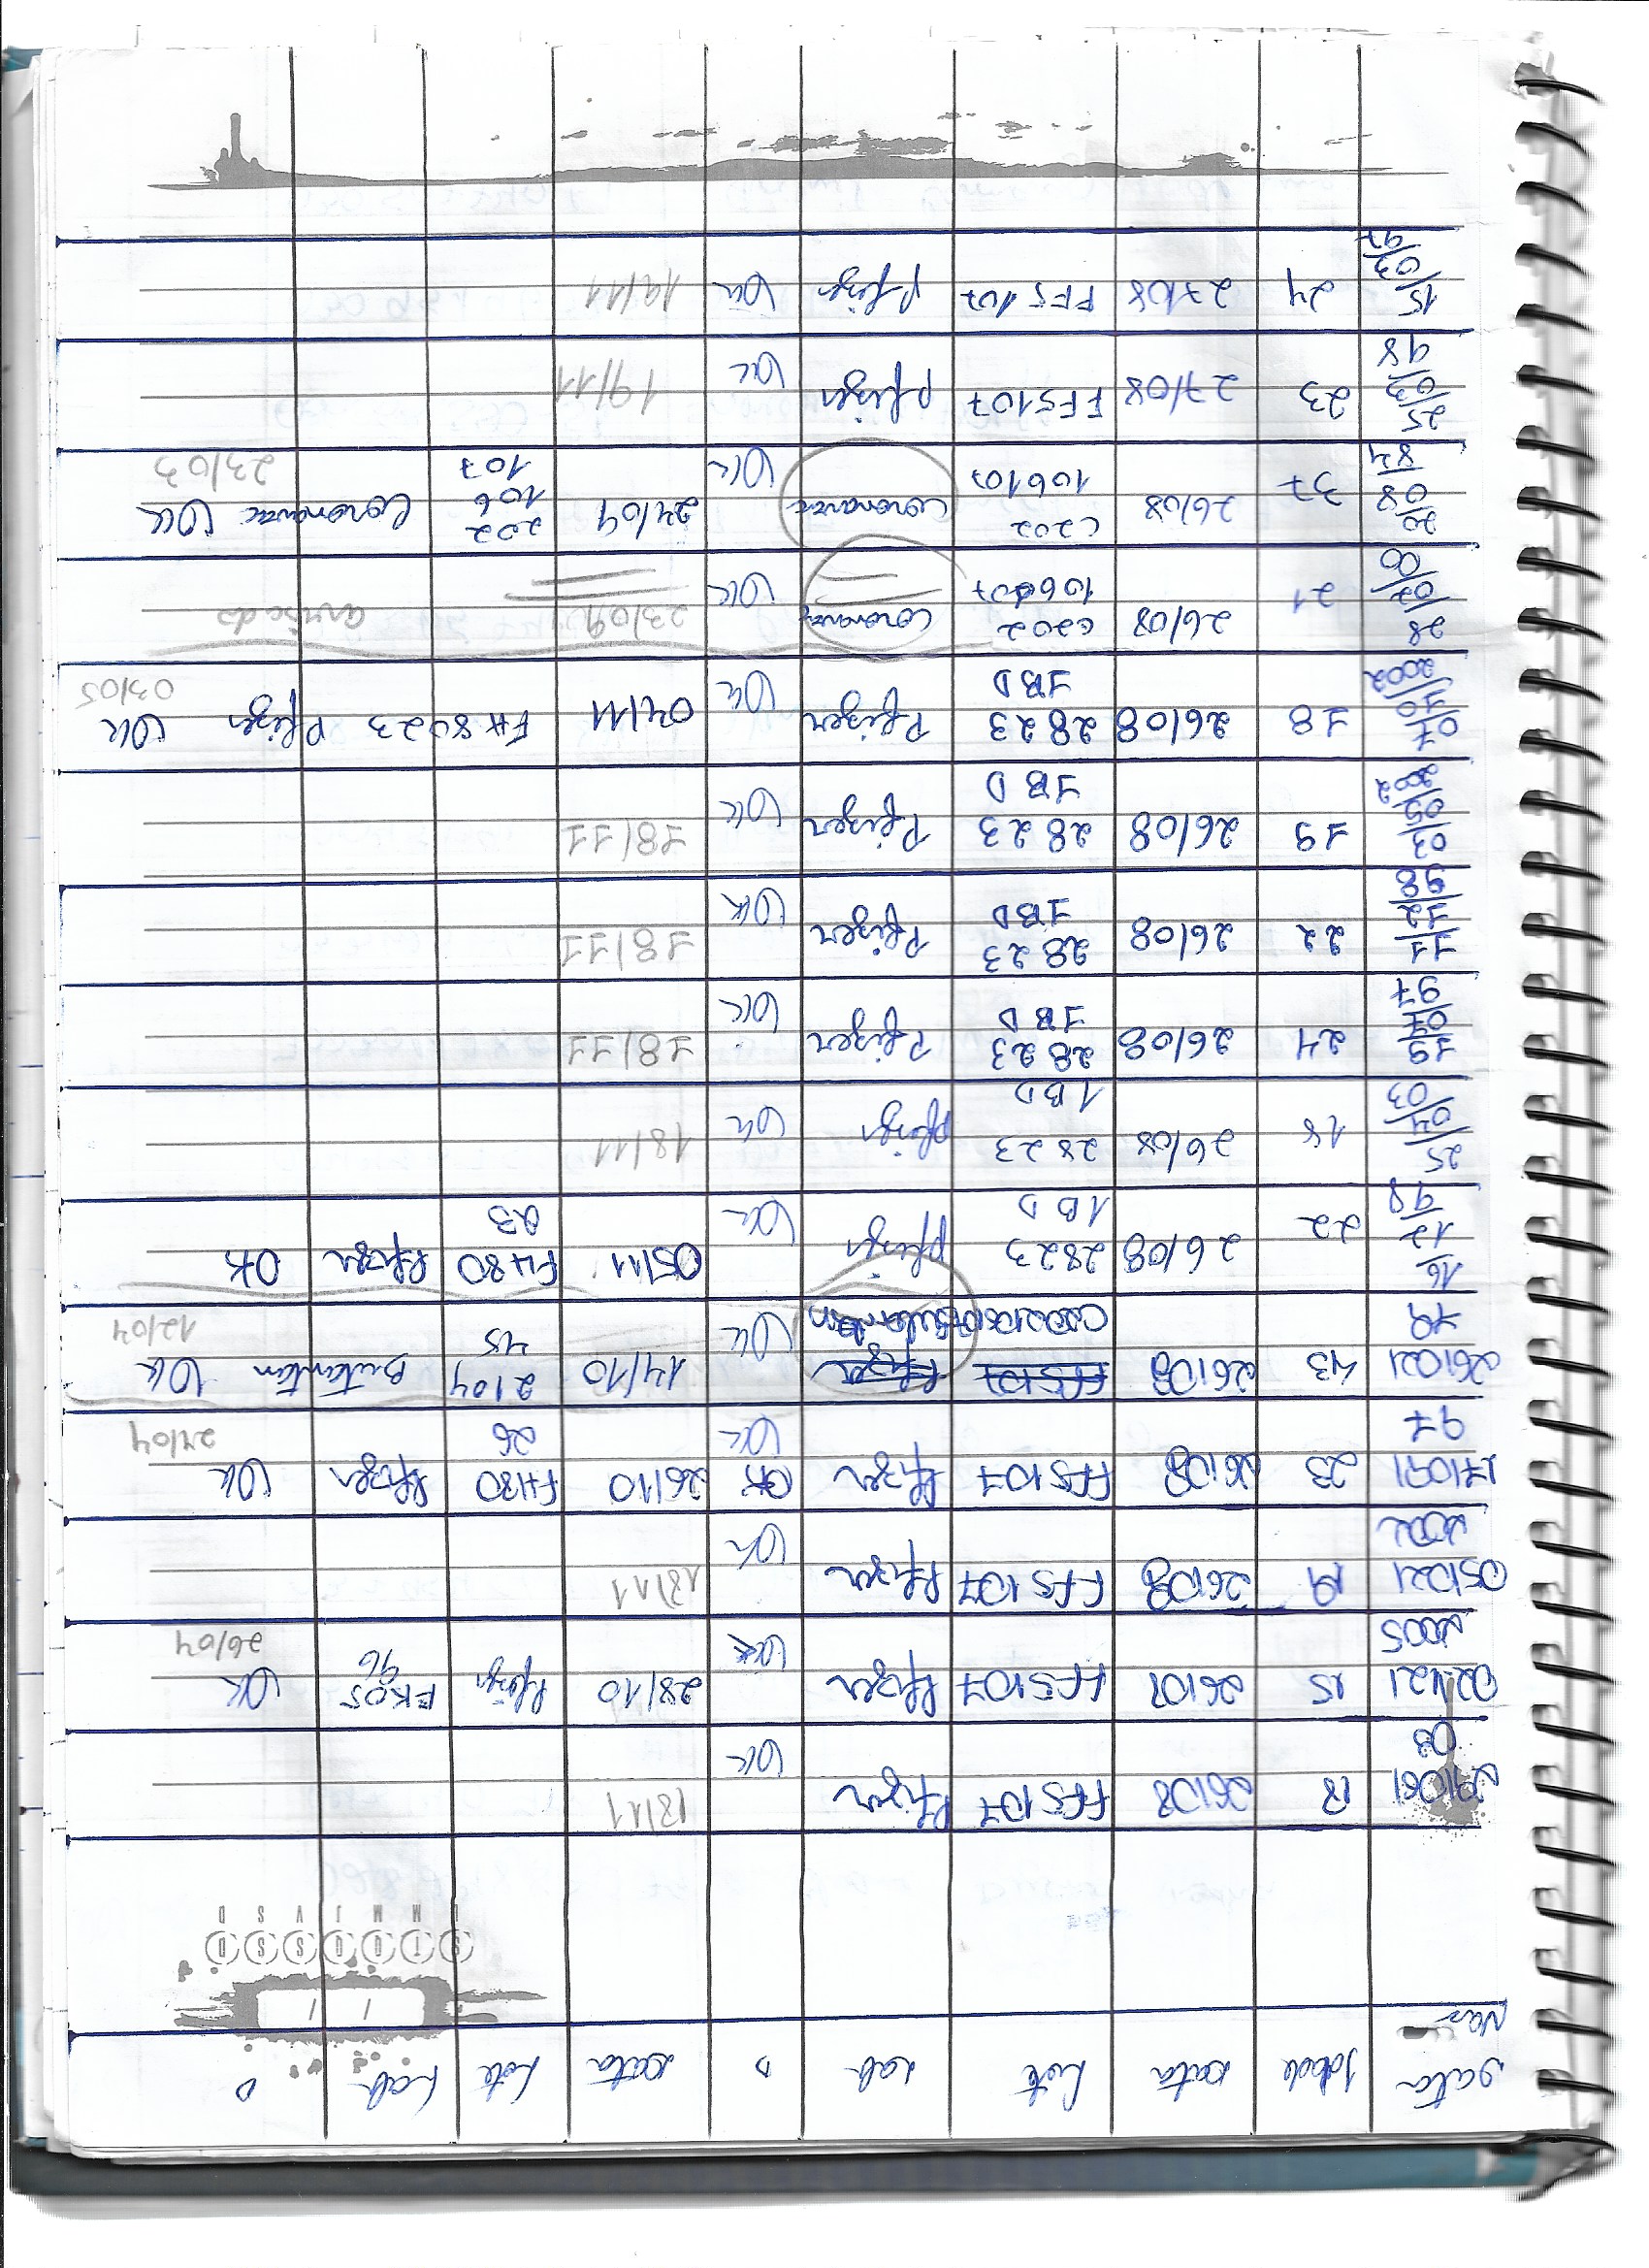 Data Idade Data Lote Lab D Data Lote Lab D
Nas
S T Q Q S S D
L M M J V S D
29/06/ 18 26/08 FFS107 Pfizer OK 18/11
03
02/12/ 15 26/08 FFS107 Pfizer OK 28/10 Pfizer FK05 OK
2005 96 26/04
05/02/ 19 26/08 FFS107 Pfizer OK 18/11
2002
17/09/ 23 26/08 FFS107 Pfizer OK 26/10 FH80 Pfizer OK
97 OK 26 27/04
26/02/ 43 26/08 FFS107 Pfizer OK 14/10 2104 Butantan OK
78 C202106107 Butantan 45 12/04
16/ 22 26/08 2823 Pfizer OK 05/11 FH80 Pfizer OK
12 1BD 23
98
25/ 18 26/08 2823 Pfizer OK 18/11
04/ 1BD
03
19 24 26/08 2823 Pfizer OK 18/11
07 1BD
97
11 22 26/08 2823 Pfizer OK 18/11
12 1BD
98
03 19 26/08 2823 Pfizer OK 18/11
09 1BD
2002
07 18 26/08 2823 Pfizer OK 04/11 FH8023 Pfizer OK
10 1BD 03/05
2002
28 21 26/08 C202 Coronavac OK 23/09 avisado
02 106107
00
20/ 37 26/08 C202 Coronavac OK 24/09 202 Coronavac OK
08 106107 106 23/03
84 107
25 23 27/08 FFS107 Pfizer OK 19/11
03
98
15 24 27/08 FFS107 Pfizer OK 19/11
03
97